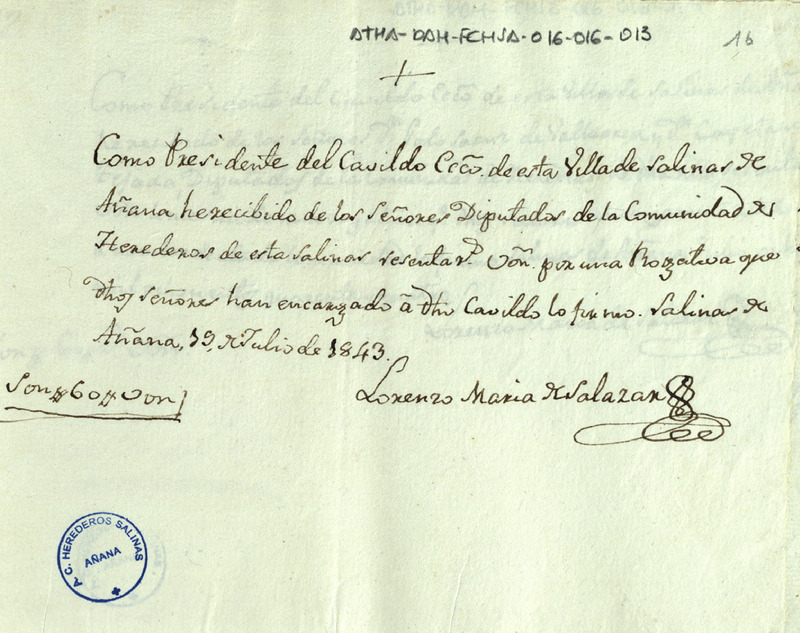 ATHA-DAH-FCHSA-016-016-013
16
Como Presidente del Cavildo Ecco. de esta Villa de Salinas de
Añana he recibido de los Señores Diputados de la Comunidad de
Herederos de esta Salinas sesenta rs. von. por una Rogativa que
dhos señores han encargado â dho Cavildo lo firmo. Salinas de
Añana, 19, de Julio de 1843.
Lorenzo Maria de Salazar
Son 60 von
A.C. HEREDEROS SALINAS
AÑANA